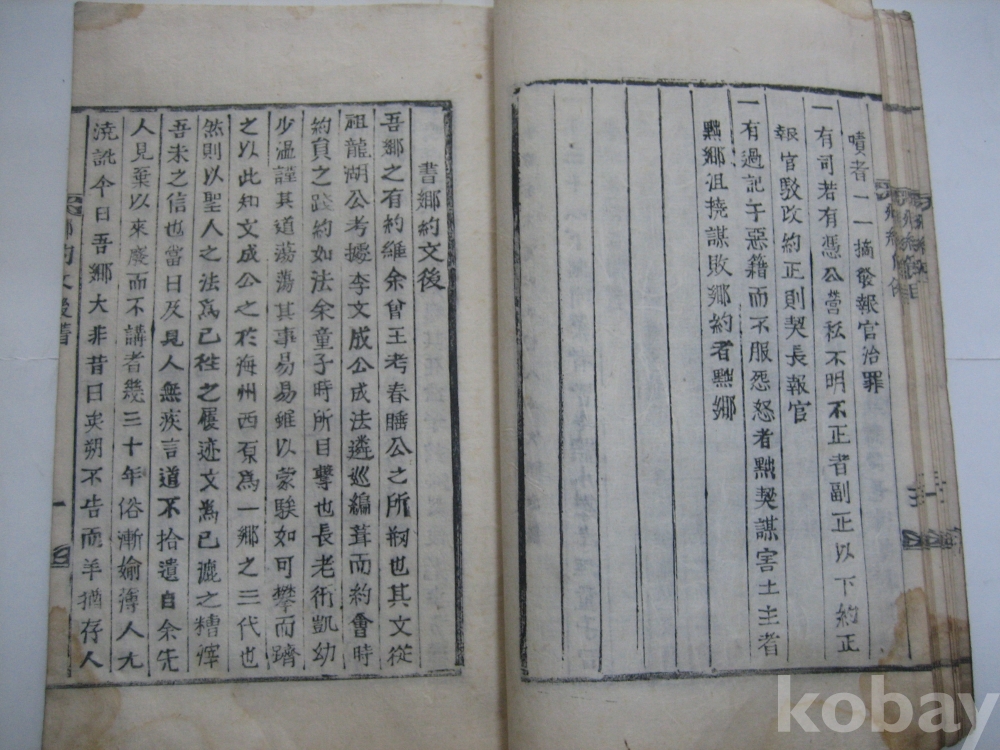 嘖者一一摘發報官治罪
一有司若有憑公營私不明不正者副正以下約正
報官駁改約正則契長報官
一有過記于惡籍而不服怨怒者黜契謀害土主者
黜鄉沮撓謀敗鄉約者黜鄉
書鄉約文後
吾鄉之有約維余曾王考春睡公之所剏也其文從
祖龍湖公考據李文成公成法遴巡編葺而約會時
約員之蹌約如法余童子時所目擊也長老衎凱幼
少溫謹其道蕩蕩其事易易雖以蒙騃如可攀而躋
之以此知文成公之於海州西原爲一鄉之三代也
然則以聖人之法爲已往之履迹文爲已漉之糟
吾未之信也當日及見人無疾言道不拾遺自余先
人見棄以來廢而不講者幾三十年俗漸婾薄人尢
澆訛今日吾鄉大非昔日矣朔不告而羊猶存人
鄉約文後書
一
kobay